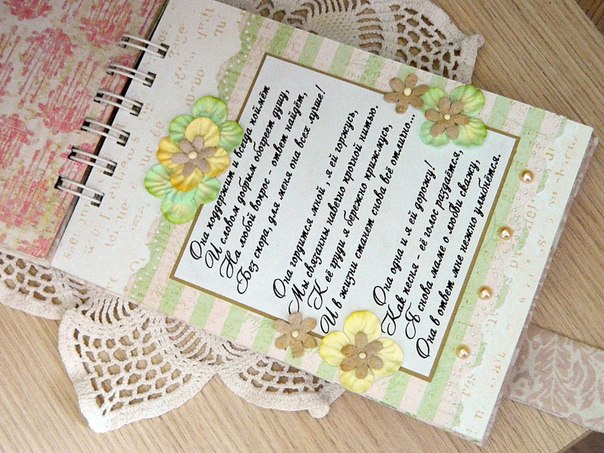 Она поддержит и всегда поймёт
И словом добрым обогреет душу,
На любой вопрос - ответ найдёт,
Без спора, для меня она всех лучше!
Она гордится мной , я ей горжусь,
Мы связанны навечно прочной нитью.
К её груди я бережно прижмусь,
И в жизни станет снова всё отлично...
Она одна и я ей дорожу!
Как песня - её голос раздаётся,
Я снова маме о любви скажу,
Она в ответ мне нежно улыбнётся.